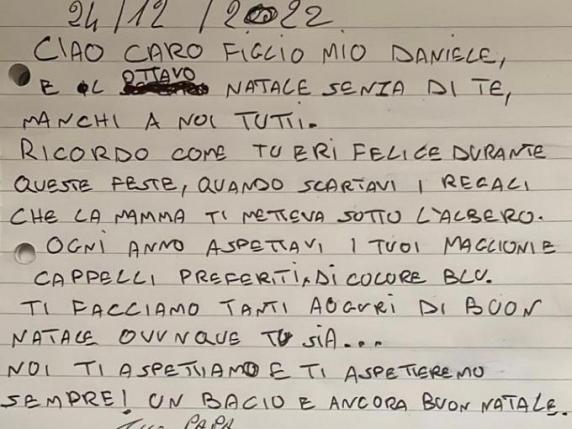 24/12/2022
CIAO CARO FIGLIO MIO DANIELE,
E IL OTTAVO NATALE SENZA DI TE,
MANCHI A NOI TUTTI.
RICORDO COME TU ERI FELICE DURANTE
QUESTE FESTE, QUANDO SCARTAVI I REGALI
CHE LA MAMMA TI METTEVA SOTTO L'ALBERO.
OGNI ANNO ASPETTAVI I TUOI MAGLIONI E
CAPPELLI PREFERITI, DI COLORE BLU.
TI FACCIAMO TANTI AUGURI DI BUON
NATALE OVUNQUE TU SIA...
NOI TI ASPETTIAMO E TI ASPETTEREMO
SEMPRE! UN BACIO E ANCORA BUON NATALE.
TUO PAPA